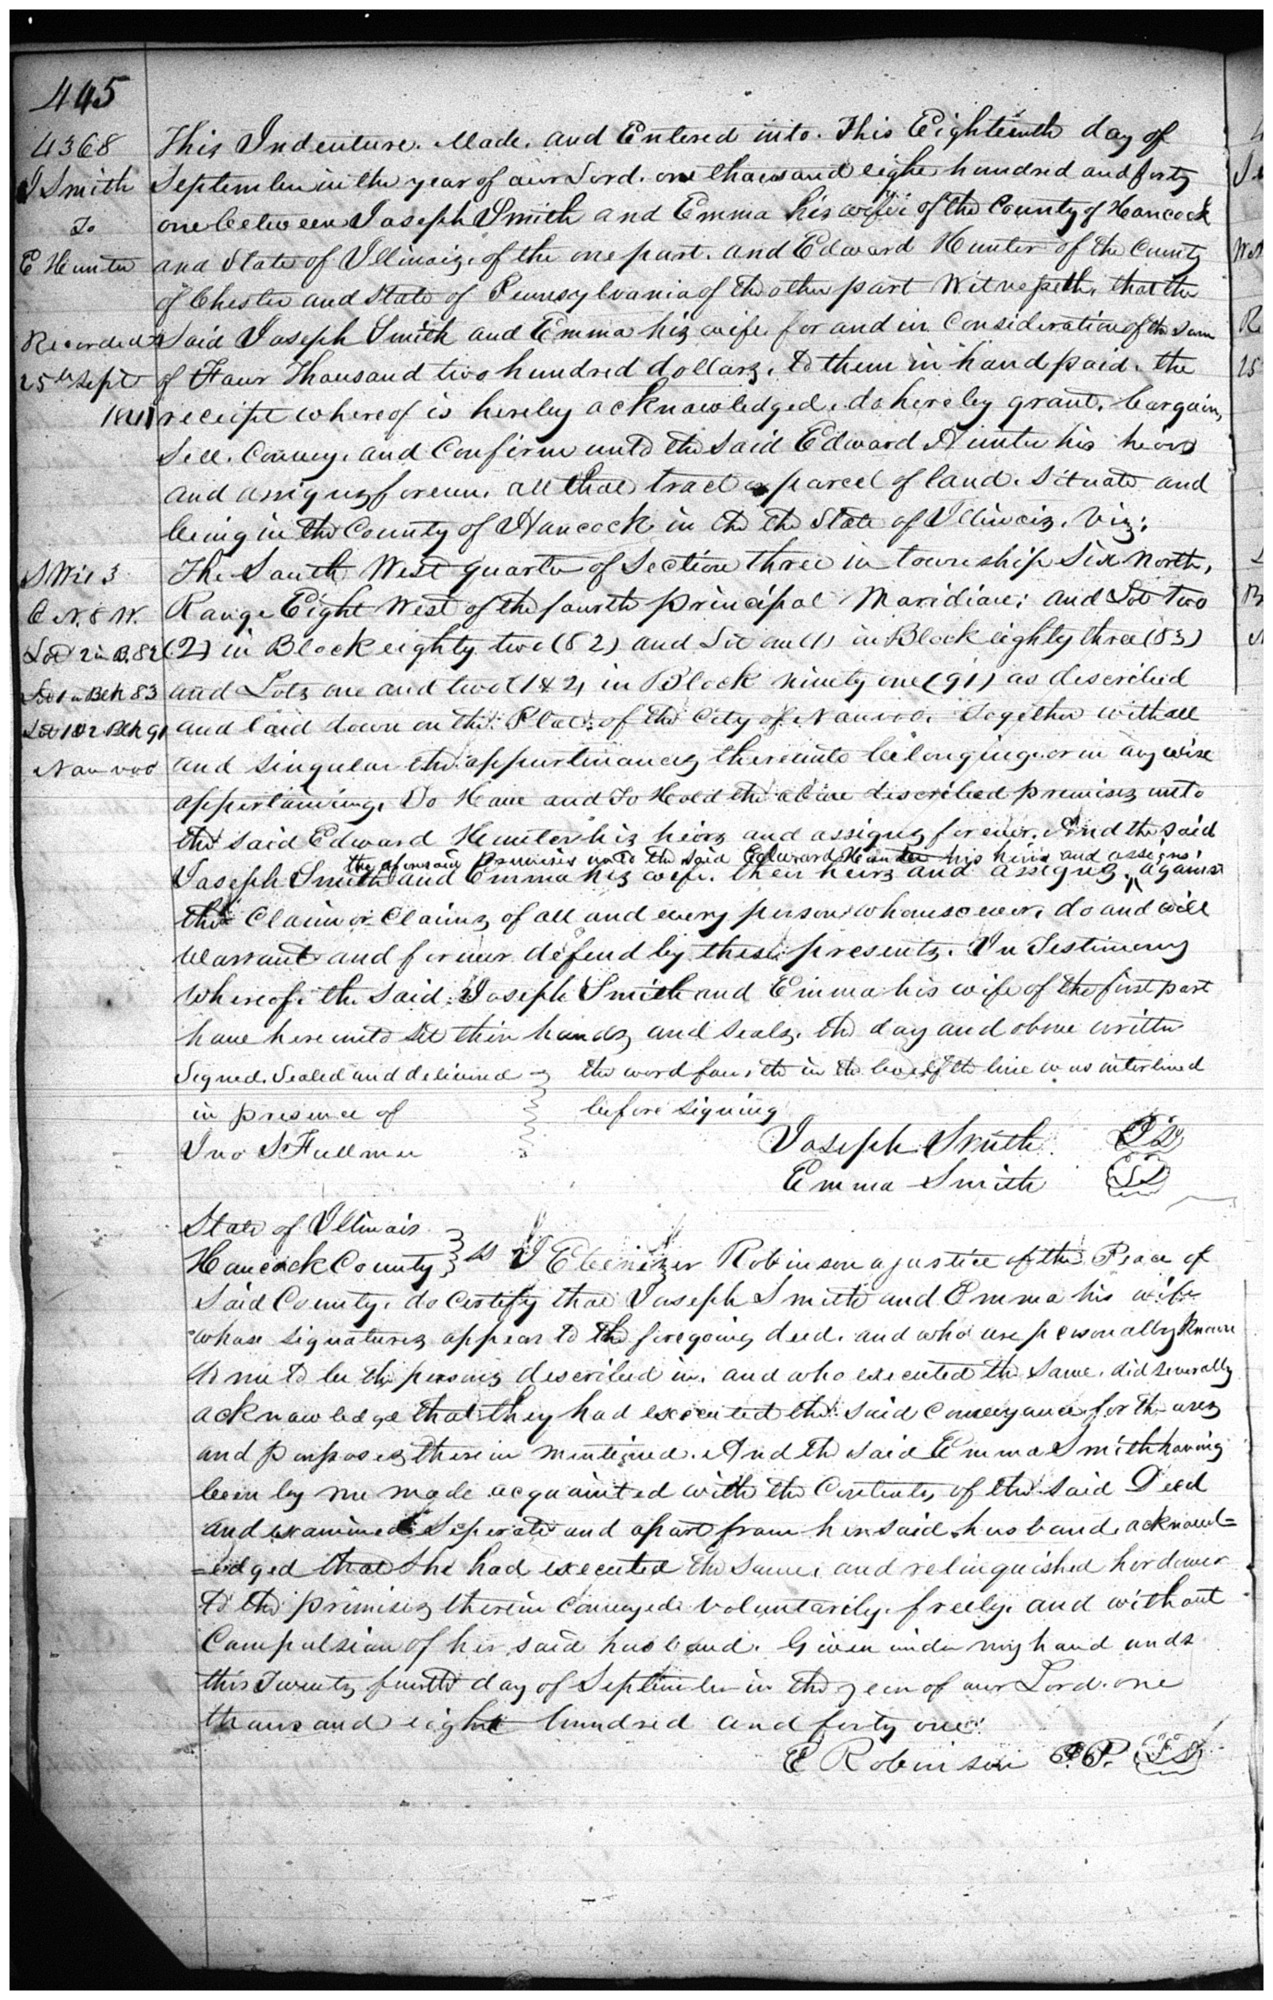 445
4368
J Smith
To
E Hunter
Recorded
25th Sept
1841
S W 1/4 3
6 N. 8 W.
Lot 2 in B. 82
Lot 1 in Blk 83
Lot 1 & 2 Blk 91
Nauvoo
This Indenture. Made. and Entered into. This Eighteenth day of
September in the year of our Lord. one thousand eight hundred and forty
one between Joseph Smith and Emma his wife of the County of Hancock
and State of Illinois. of the one part. and Edward Hunter of the County
of Chester and State of Pennsylvania of the other part Witnesseth, that the
Said Joseph Smith and Emma his wife for and in Consideration of the Sum
of Four Thousand two hundred dollars. to them in hand paid. the
receipt whereof is hereby acknowledged. do hereby grant. bargain,
Sell. Convey. and Confirm unto the said Edward Hunter his heirs
and assigns forever. all that tract or parcel of land. Situate and
being in the County of Hancock in the the State of Illinois. Viz:
The South West quarter of Section three in township Six North,
Range Eight West of the fourth principal Maridian; and Lot two
(2) in Block eighty two (82) and Lot one (1) in Block eighty three (83)
and Lots one and two (1 & 2) in Block ninety one (91) as described
and laid down on the Plat of the City of Nauvoo. Together with all
and singular the appurtinances thereunto belonging. or in any wise
appertaining. To Have and To Hold the above described premises unto
the said Edward Hunter his heirs and assigns forever. And the said
the aforesaid Premises unto the said Edward Hunter his heirs and assigns.
Joseph Smith and Emma his wife. their heirs and assigns. ^ against
the Claim or Claims of all and every person whomsoever. do and will
Warrant and forever defend by these presents. In Testimony
Whereof. the said Joseph Smith and Emma his wife of the first part
have hereunto set their hands and seals. the day and above written
Signed. Sealed and delivered
in presence of
Jno S Fullmer
the word fourth in the line was interlined
before signing
Joseph Smith LS
Emma Smith LS
State of Illinois
Hancock County } ss I Ebenezer Robinson a justice of the Peace of
Said County. do certify that Joseph Smith and Emma his wife
whose signatures appear to the foregoing deed. and who are personally known
to me to be the persons described in. and who executed the same. did severally
acknowledge that they had executed the said conveyance for the uses
and purposes therein mentioned. And the said Emma Smith having
been by me made acquainted with the Contents of the said Deed
and examined Seperate and apart from her said husband. acknowl=
=edged that she had executed the same. and relinquished her dower
to the premises therein conveyed. voluntarily. freely. and without
Compulsion of her said husband. Given under my hand and s
this Twenty fourth day of September in the year of our Lord. one
thousand eight hundred and forty one.
E Robinson J.P. LS